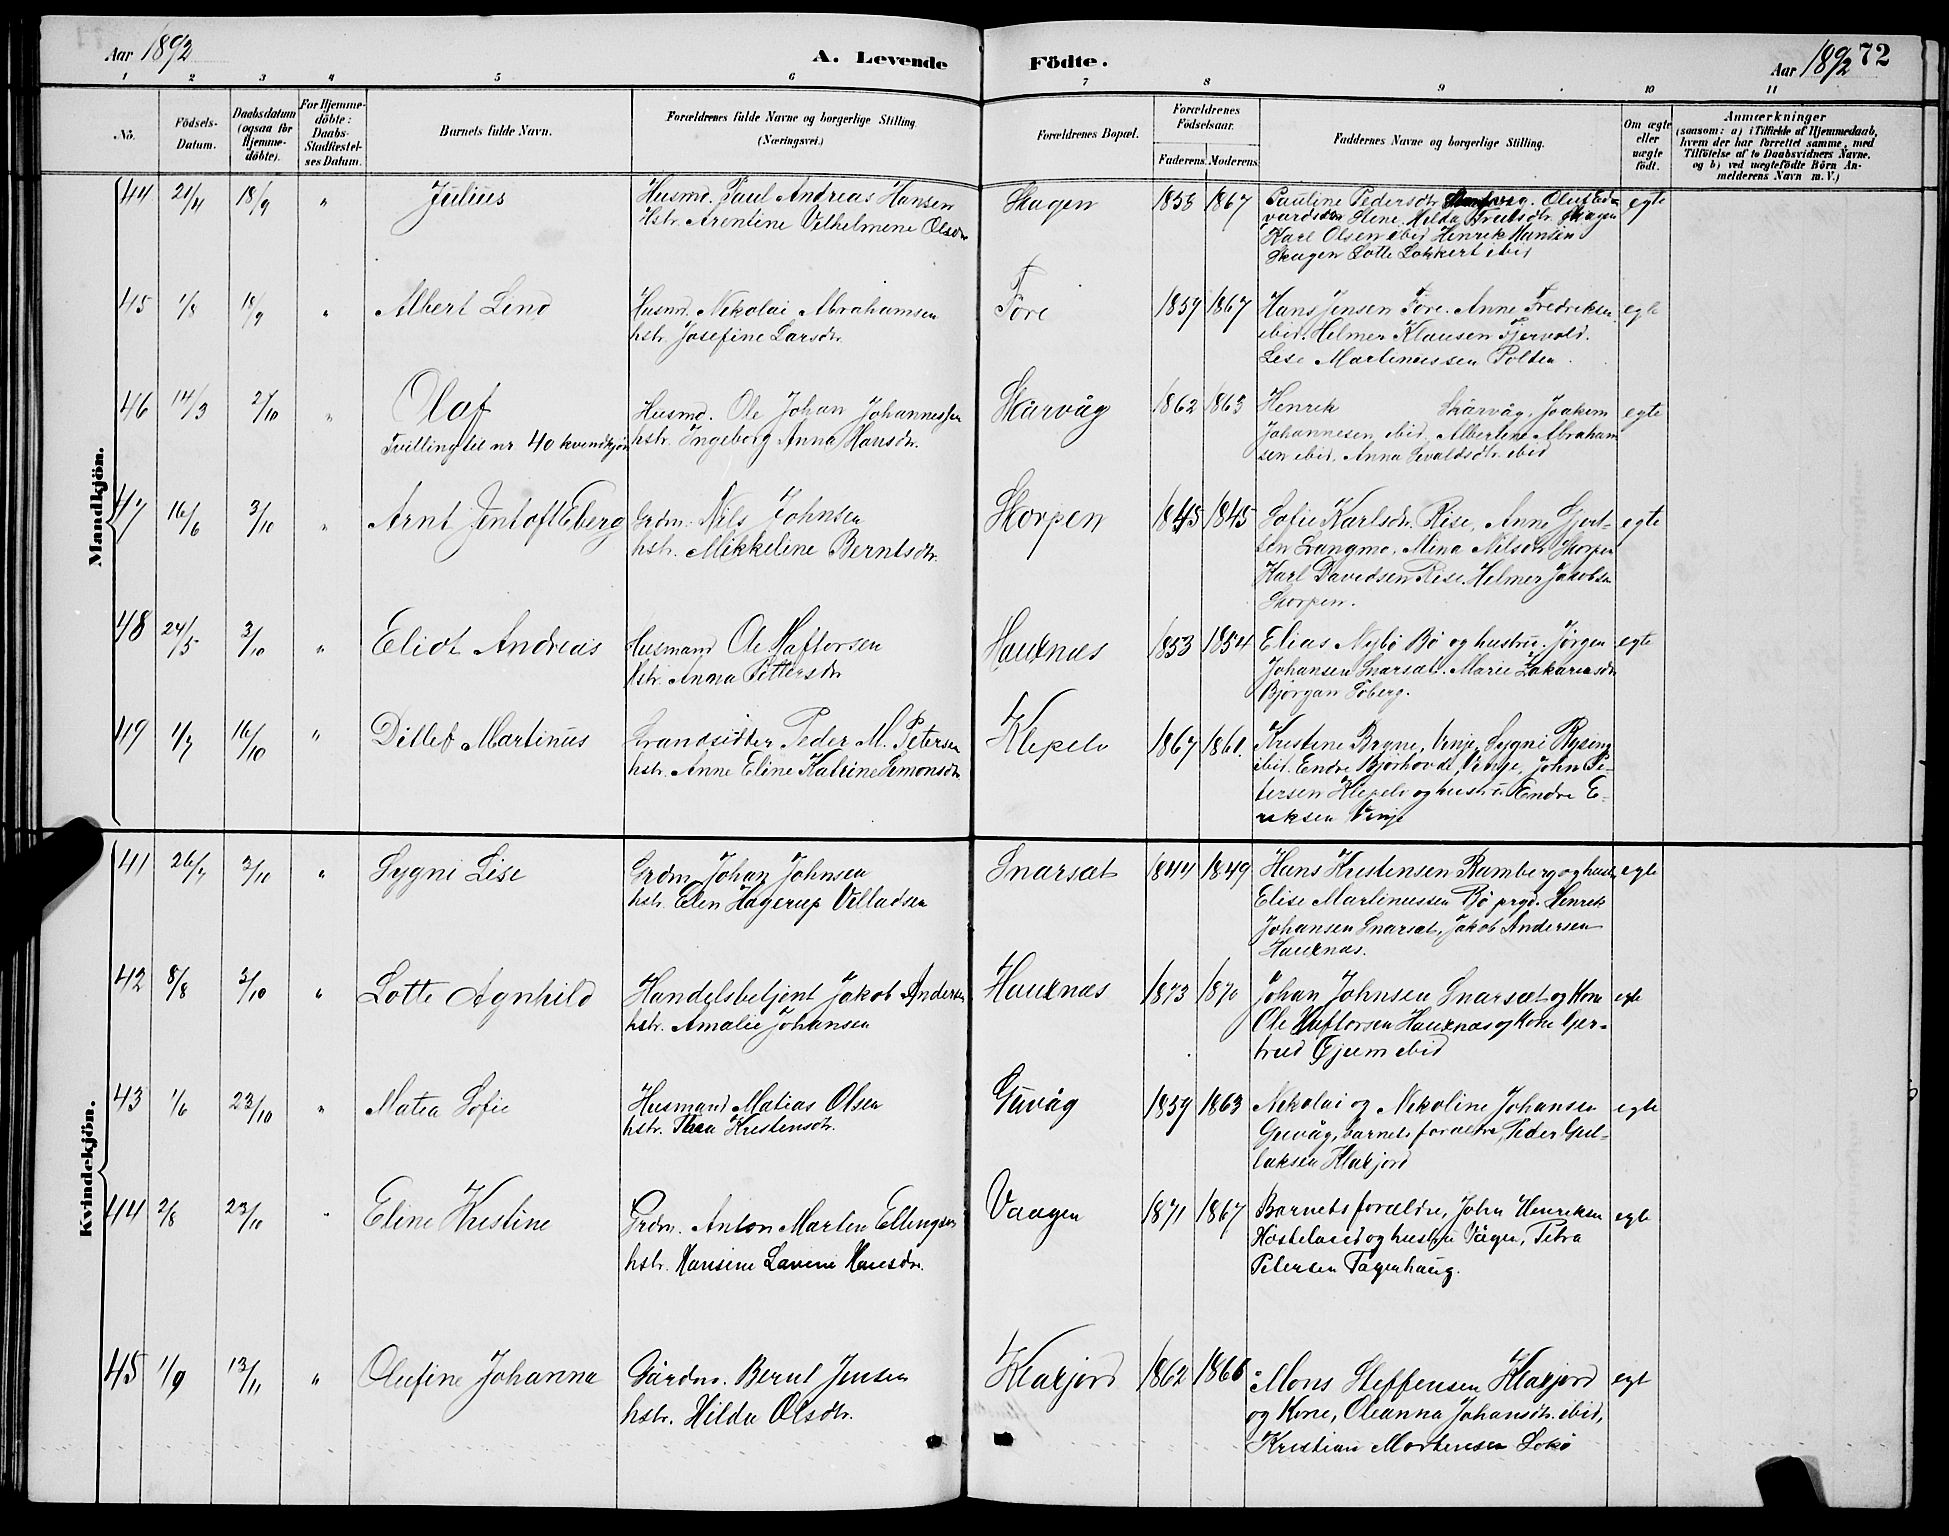 Aar 1892
A. Levende Födte.
Aar 1892 72
1 2 3 4 5 6 7 8 9 10 11
No.
Födsels-Datum.
Daabsdatum (ogsaa for Hjemme-döbte).
For Hjemme-döbte: Daabs-Stadfæstel-ses Datum.
Barnets fulde Navn.
Forældrenes fulde Navne og borgerlige Stilling. (Næringsvei.)
Forældrenes Bopæl.
Forældrenes Födselsaar.
Faderens. Moderens.
Faddernes Navne og borgerlige Stilling.
Om ægte eller uægte födt.
Anmærkninger
(saasom: a) i Tilfælde af Hjemmedaab,
hvem der har forrettet samme, med
Tilföielse af to Daabsvidners Navne.
og b) ved uægtefödte Börn An-
melderens Navn m. V.)
Mandkjön.
44 21/4 18/9 " Julius
Husmd. Paul Andreas Hansen
Hstr. Arentine Vilhelmene Olsdr
Skagen 1858 1867
Pauline Pedersdtr. Oluf Ed-
vardsdtr Stene. Hilda Skagen
Karl Olsen ibid Henrik Hansen
Skagen Lotte Lokkert ibid
egte
45 1/8 18/9 " Albert Lind
Husmd. Nekolai Abrahamsen
hstr. Josefine Larsdtr.
Føre 1859 1867
Hans Jensen Føre. Anne Fredriksen
ibid. Helmer Klausen Fjervold.
Lise Martinussen Polden.
egte
46 14/3 2/10 " Olaf
Tvilling til nr 40 kvindkjøn
Husmd. Ole Johan Johannessen
hstr. Ingeborg Anna Hansdr.
Skårvåg 1862 1863
Henrik Skårvåg, Joakim
Johannesen ibid, Albertine Abraham
sen ibid, Anna Sevaldsdtr. ibid
egte
47 16/6 3/10 " Arnt Jentoft Eberg
Grdm. Nils Johnsen
hstr. Mikkeline Berntsdtr.
Skorpen 1845 1845
Sofie Karlsdr. Rise, Anne Gjert-
sen Langmo, Mina Nilsdr Skorpen
Karl Davedsen Rise Helmer Jakobsen
Skorpen.
egte
48 24/5 3/10 " Eliot Andreas
Husmand Ole Haftorsen
Hstr. Anna Pettersdr
Hauknæs 1853 1854
Elias Nybø Bø og hustru. Jørgen
Johansen Snarsæt. Marie Zakariasdr
Bjørgan Foberg.
egte
49 1/7 16/10 " Ditlef Martinus
Strandsidder Peder M. Petersen
hstr. Anne Eline Katrine Simonsdr
Klepelv 1867 1861.
Kristine Bryne, Vinje, Sygni Rysing
ibid. Endre Bjørhovde, Vinje, John Pe-
tersen Klepelv og hustru Endre E-
riksen Vinje
Kvindekjön.
41 26/7 3/10 " Sygni Lise
Grdm Johan Johnsen
hstr. Elen Hagerup Villadsen
Snarsæt 1844 1849
Hans Kristensen Ramberg og hustr
Elise Martinussen Bø prgd. Henrik
Johansen Snarsæt, Jakob Andersen
Hauknæs.
egte
42 8/8 3/10 " Lotte Agnhild
Handelsbetjent Jakob Andersen
hstr. Amalie Johansen
Hauknæs 1873 1870
Johan Johnsen Snarsæt og Kone
Ole Haftorsen Hauknæs og Kone Ger-
trud Gjeim ibid
egte
43 1/6 23/10 " Matea Sofie
Husmand Matias Olsen
hstr. Thea Kristensdtr.
Guvåg 1859 1863
Nekolai og Nekoline Johansen
Guvåg, barnets forældre, Peder Gul-
laksen Klakjord
egte
44 2/8 23/10 " Eline Kristine
Grdm. Anton Martin Ellingsen
hstr. Hansine Lavine Hansdr.
Vaagen 1871 1867
Barnets forældre, John Henriksen
Høsteland og hustru Vågen, Petra
Petersen Fagerhaug.
egte
45 1/9 13/11 " Olufine Johanna
Gårdm. Bernt Jensen
hstr. Hilda Olsdtr.
Klakjord 1862 1866
Mons Steffensen Klakjord
og Kone, Oleanna Johansdtr. ibid,
Kristian Mortensen Sokø
egt